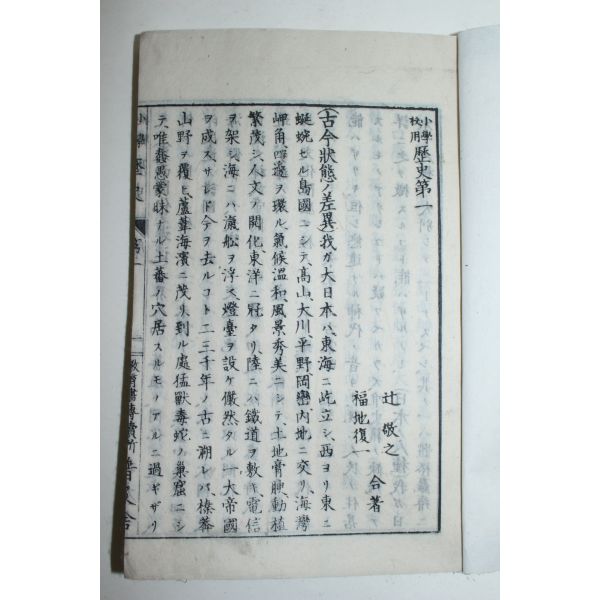 小學校用歷史第一
辻敬之
福地復一 合著
(古今狀態ノ差異)我ガ大日本ハ、東海ニ屹立シ、西ヨリ東ニ
蜿蜒セル島國ニシテ、高山、大川、平野、岡巒內地ニ交リ、海灣
岬角、四邊ヲ環ル、氣候溫和、風景秀美ニシテ、土地膏腴、動植
繁茂シ、人文ノ開化東洋ニ冠タリ、陸ニハ鐵道ヲ敷キ、電信
ヲ架シ、海ニハ滊舩ヲ浮ベ、燈臺ヲ設ケ、儼然タル一大帝國
ヲ成スサレド今ヲ去ルコト、二三千年ノ古ニ溯レバ、榛莽
山野ヲ覆ヒ、蘆葦海濱ニ茂リ、到ル處猛獸毒蛇ノ巢窟ニシ
テ、唯蠢愚蒙昧ナル土蕃ノ穴居スルモノアルニ過ギザリ
小學歷史 第一
普及舍